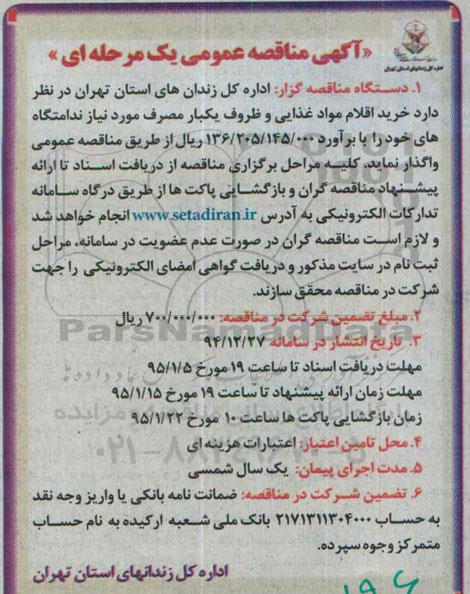 اداره کل زندانهای استان تهران
«آگهی مناقصه عمومی یک مرحله ای»
۱. دستگاه مناقصه گزار: اداره کل زندان های استان تهران در نظر
دارد خرید اقلام مواد غذایی و ظروف یکبار مصرف مورد نیاز ندامتگاه
های خود را با برآورد ۱۳۶/۲۰۵/۱۴۵/۰۰۰ ریال از طریق مناقصه عمومی
واگذار نماید. کلیه مراحل برگزاری مناقصه از دریافت اسناد تا ارائه
پیشنهاد مناقصه گران و بازگشایی پاکت ها از طریق درگاه سامانه
تدارکات الکترونیکی به آدرس www.setadiran.ir انجام خواهد شد
و لازم است مناقصه گران در صورت عدم عضویت در سامانه، مراحل
ثبت نام در سایت مذکور و دریافت گواهی امضای الکترونیکی را جهت
شرکت در مناقصه محقق سازند.
۲. مبلغ تضمین شرکت در مناقصه: ۷۰۰/۰۰۰/۰۰۰ ریال
۳. تاریخ انتشار در سامانه ۹۴/۱۲/۲۷
مهلت دریافت اسناد تا ساعت ۱۹ مورخ ۹۵/۱/۵
مهلت زمان ارائه پیشنهاد تا ساعت ۱۹ مورخ ۹۵/۱/۱۵
زمان بازگشایی پاکت ها ساعت ۱۰ مورخ ۹۵/۱/۲۲
۴. محل تامین اعتبار: اعتبارات هزینه ای
۵. مدت اجرای پیمان: یک سال شمسی
۶. تضمین شرکت در مناقصه: ضمانت نامه بانکی یا واریز وجه نقد
به حساب ۲۱۷۱۳۱۱۳۰۴۰۰۰ بانک ملی شعبه ارکیده به نام حساب
متمرکز وجوه سپرده.
اداره کل زندانهای استان تهران
ParsNamadData